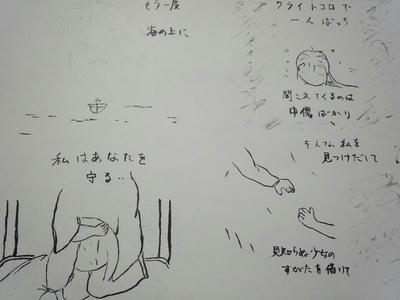 クライトコロで
一人ぼっち
聞こえてくるのは
中傷ばかり
そんな私を
見つけだして
見知らぬ少女の
すがたを借りて
もう一度
海の上に
私はあなたを
守る‥